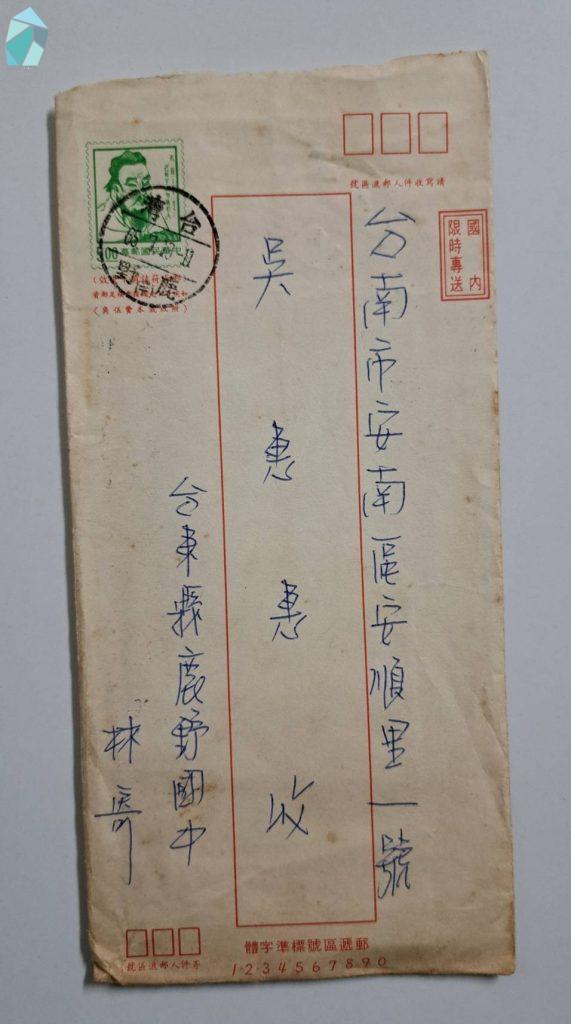 請寫收件人郵遞區號
國內
限時專送
台南市安南區安順里一號
吳惠惠收
台東縣鹿野國中
林寄
中華民國郵票
郵遞區號標準字體
1·2·3·4·5·6·7·8·9·0
寄件人郵遞區號